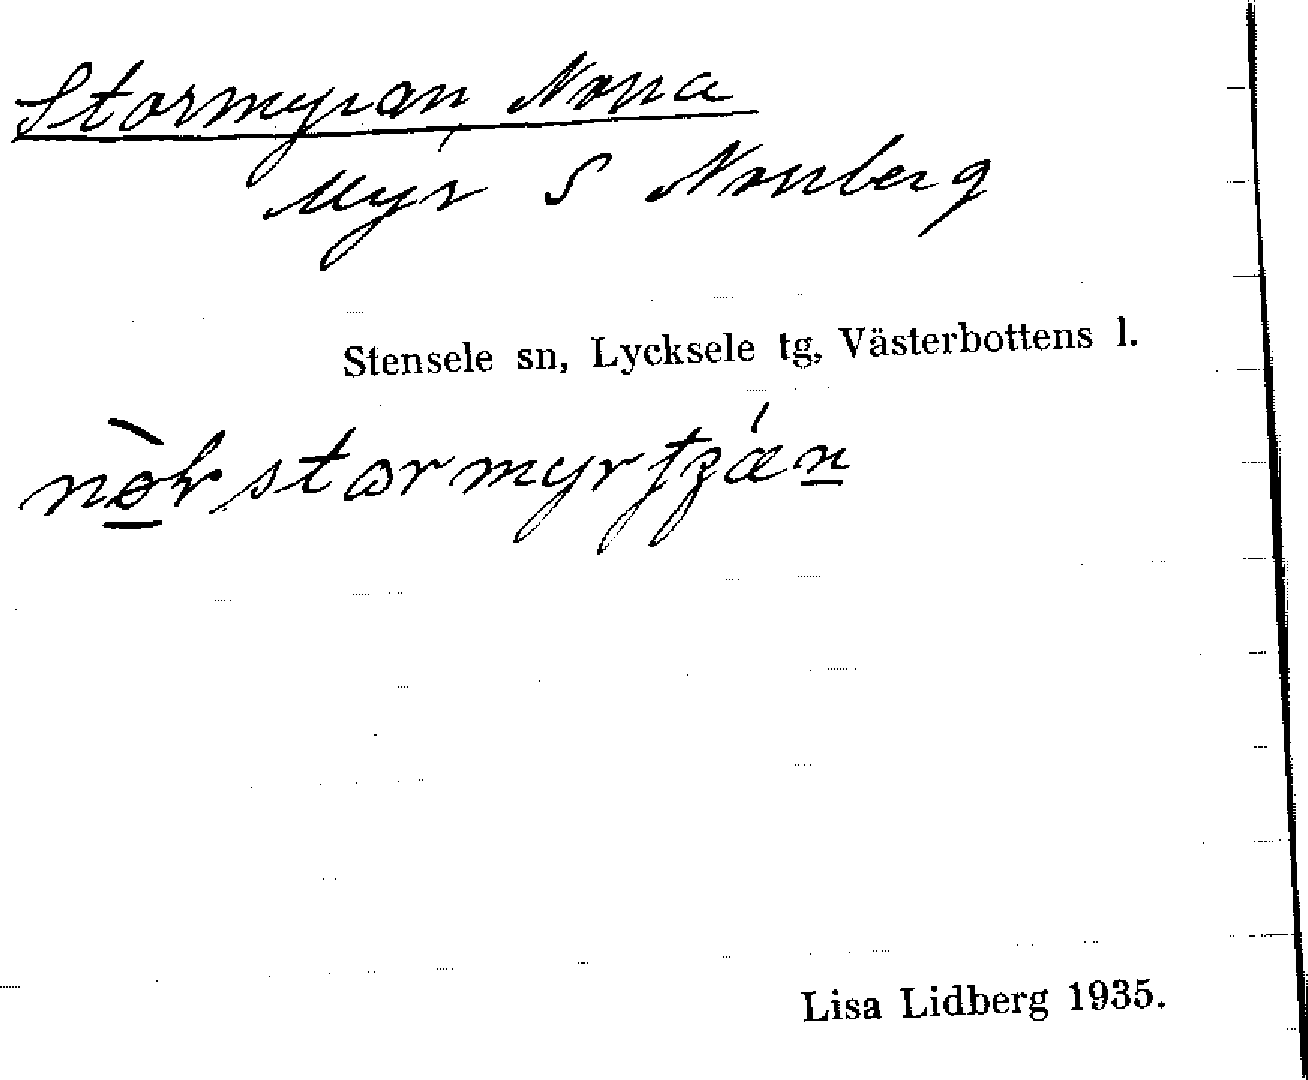 Stormyran, Norra
Myr S Norrberg
Stensele sn, Lycksele tg, Västerbottens l.
Lisa Lidberg 1935.